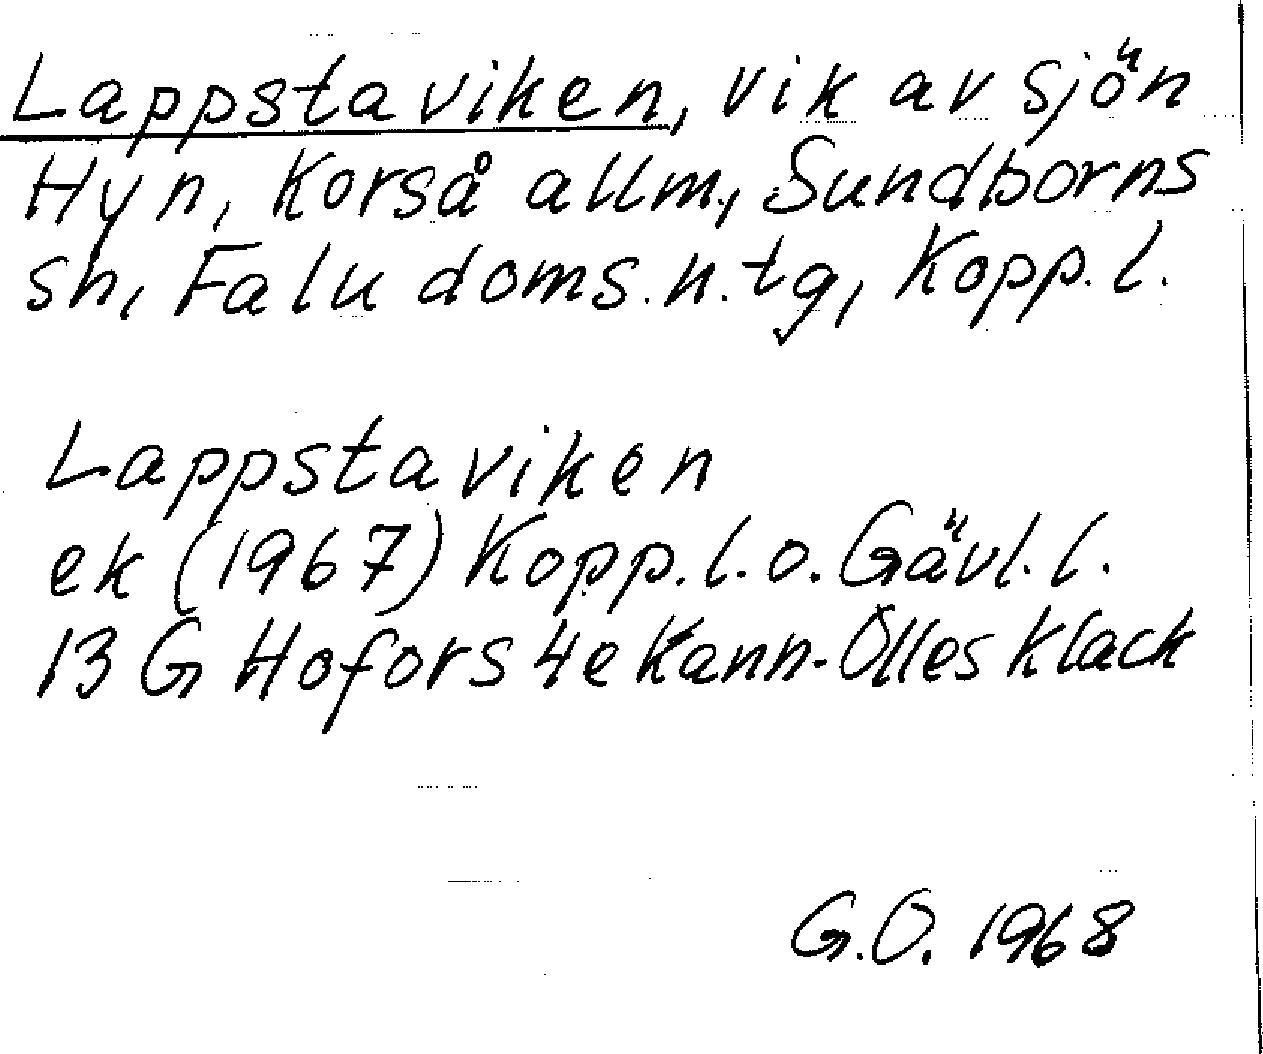 Lappstaviken, vik av sjön
Hyn, Korså allm., Sundborns
sn, Falu doms.n.tg, Kopp.l.
Lappstaviken
ek (1967) Kopp.l.o.Gävl.l.
13 G Hofors 4e Kann-Olles klack
G.O. 1968